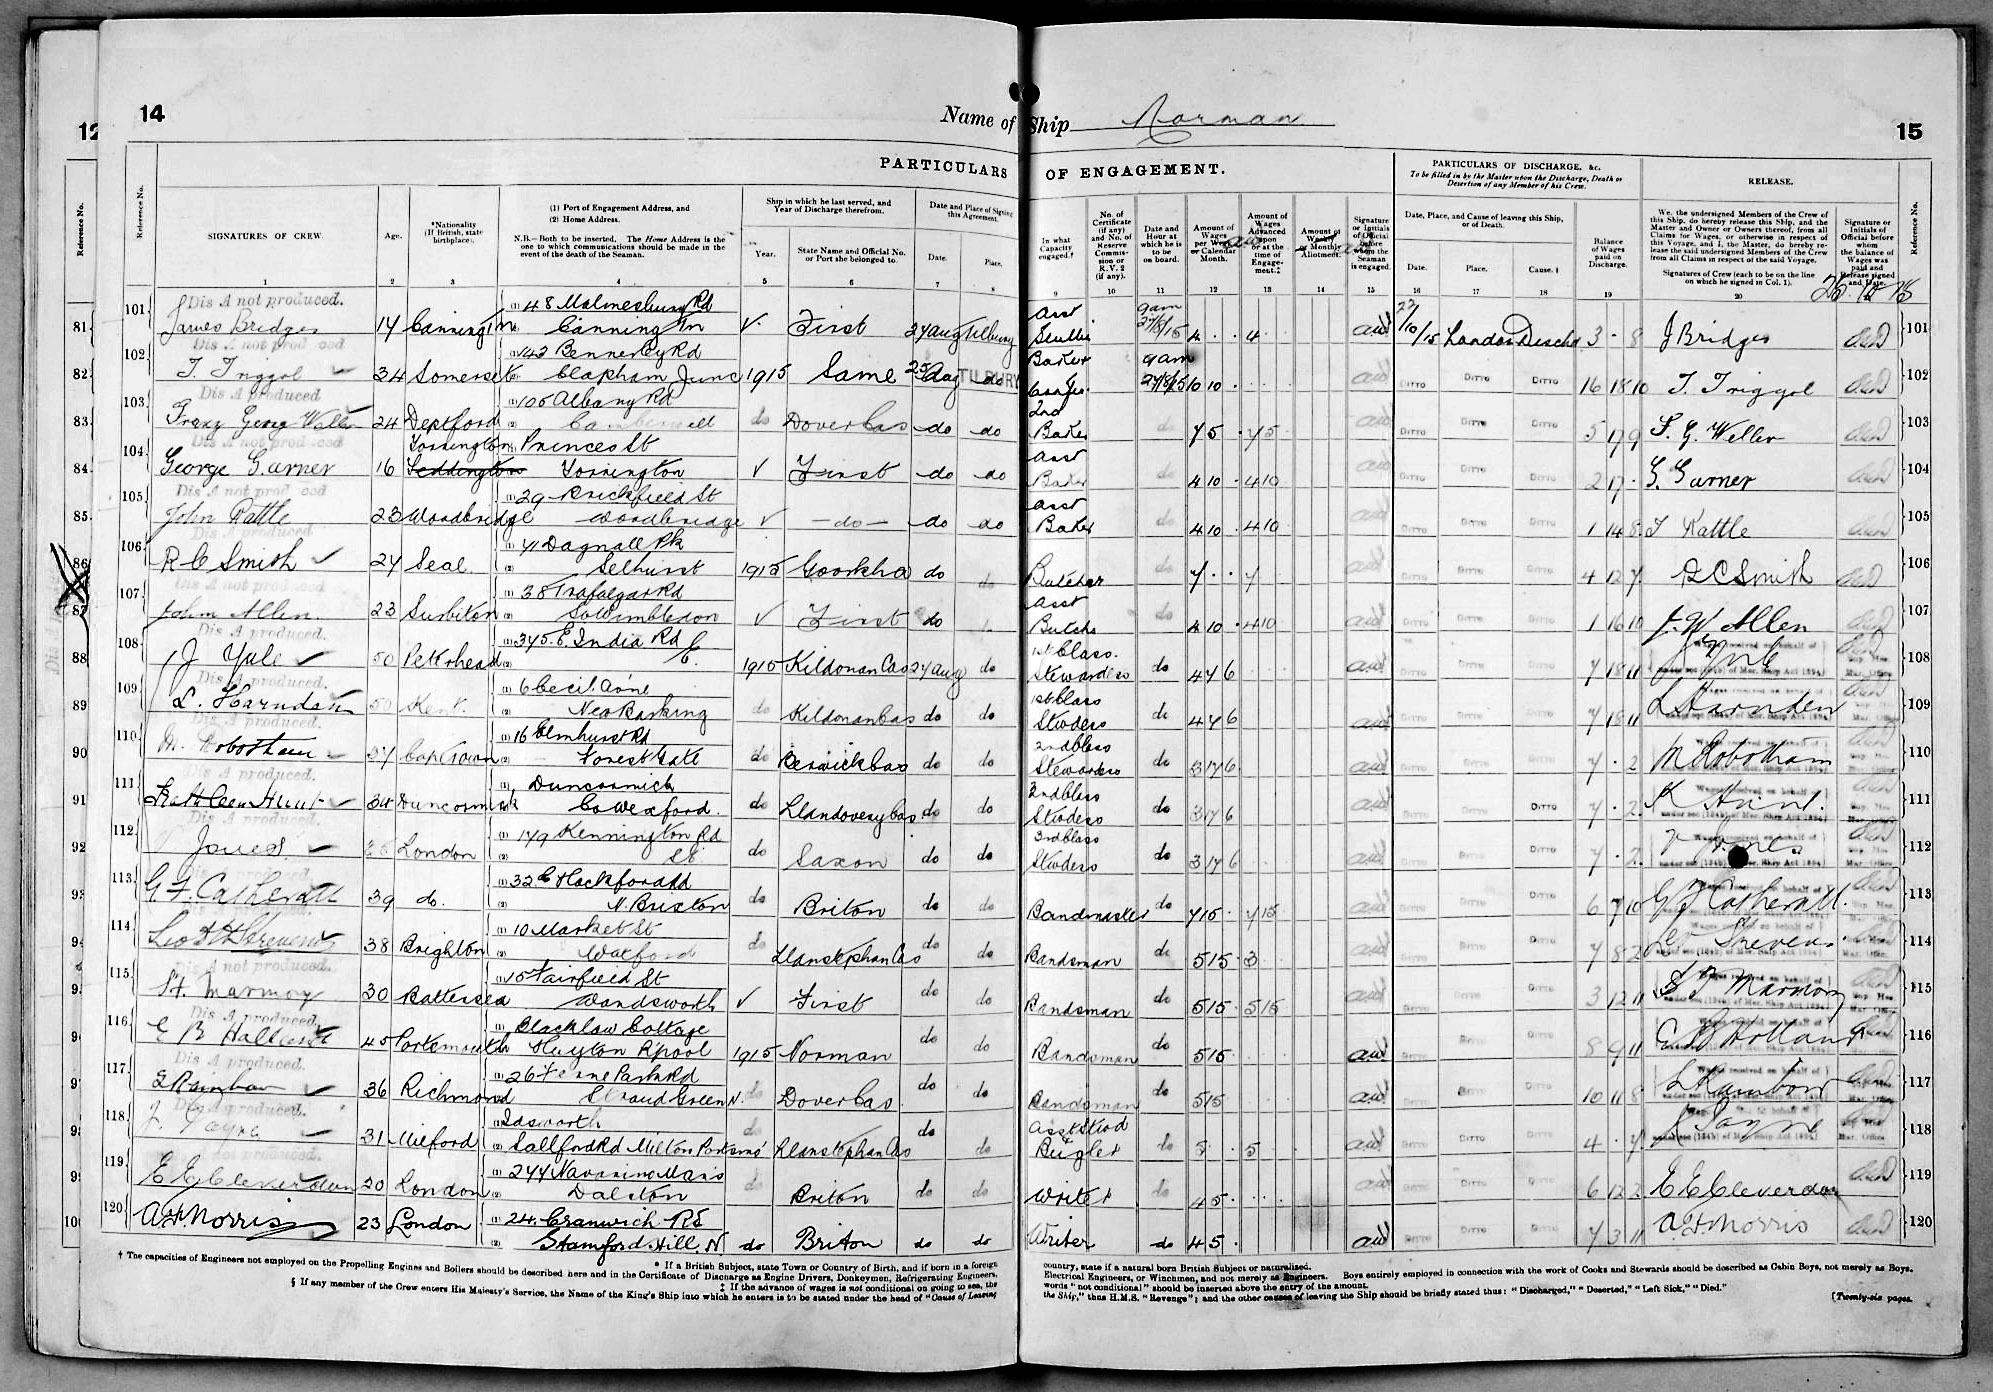 14
Name of Ship Norman
15
PARTICULARS OF ENGAGEMENT.
PARTICULARS OF DISCHARGE, &c.
To be filled in by the Master upon the Discharge, Death or Desertion of any Member of his Crew.
RELEASE.
Reference No.
SIGNATURES OF CREW.
Age.
*Nationality (If British, state birthplace).
(1) Port of Engagement Address, and
(2) Home Address.
N.B.—Both to be inserted. The Home Address is the one to which communications should be made in the event of the death of the Seaman.
Ship in which he last served, and Year of Discharge therefrom.
Year.
State Name and Official No. or Port she belonged to.
Date and Place of Signing this Agreement.
Date.
Place.
In what Capacity engaged.†
No. of Certificate (if any) and No. of Reserve Commission or R.V. 2 (if any).
Date and Hour at which he is to be on board.
Amount of Wages per Week or Calendar Month.
Amount of Wages Advanced upon or at the time of Engagement.‡
Amount of Weekly or Monthly Allotment.
Signature or Initials of Official before whom the Seaman is engaged.
Date, Place, and Cause of leaving this Ship, or of Death.
Date.
Place.
Cause. §
Balance of Wages paid on Discharge.
We, the undersigned Members of the Crew of this Ship, do hereby release this Ship, and the Master and Owner or Owners thereof, from all Claims for Wages, or otherwise in respect of this Voyage, and I, the Master, do hereby release the said undersigned Members of the Crew from all Claims in respect of the said Voyage.
Signatures of Crew (each to be on the line on which he signed in Col. 1).
Signature or Initials of Official before whom the balance of Wages was paid and Release signed and Date.
Reference No.
1 2 3 4 5 6 7 8 9 10 11 12 13 14 15 16 17 18 19 20
101 Dis A not produced. James Bridges 17 Canning Tn (1) 48 Malmesbury Rd (2) Canning Tn First 27 Aug Tilbury Asst Scullion 9am 27/8/15 4 . . 4 27/10/15 London Dischd 3 - 8 J Bridges 101
102 T. Triggol 34 Somerset (1) 42 Bennerley Rd (2) Clapham Junc 1915 Same 25 Aug TILBURY do Baker 9am 27/8/15 10 10 DITTO DITTO DITTO 16 18 10 T. Triggol 102
103 Dis A produced 24 Deptford (1) 105 Albany Rd (2) Camberwell do Dover Cas do do 2nd Baker do 7 5 . 7 5 DITTO DITTO DITTO 5 17 9 F. G. Weller 103
104 George Garner 16 Torrington Princes St Torrington First do do Asst Baker do 4 10 . 4 10 DITTO DITTO 2 17 . G. Garner 104
105 Dis A not produced John Rattle 23 Woodbridge (1) 29 Brickfield St Woodbridge — do — do do Asst Baker do 4 10 . 4 10 DITTO DITTO DITTO 1 14 8 J Rattle 105
106 Dis A produced R C Smith 27 Seal (1) 71 Dagnall Pk (2) Selhurst 1915 Goorkha do do Butcher do 7 . . 7 DITTO DITTO DITTO 4 12 7 R C Smith 106
107 Dis A not produced John Allen 23 Surbiton (1) 38 Trafalgar Rd (2) So Wimbledon First do Asst Butcher do 4 10 . 4 10 DITTO DITTO DITTO 1 16 10 J. W Allen 107
108 Dis A produced. J Yule 50 Peterhead (1) 375. E. India Rd (2) E. 1915 Kildonan Cas 27 Aug do 1st Class. Stewardess do 4 7 6 DITTO DITTO DITTO 7 18 11 J Yule 108
109 Dis A produced. L. Harnden 50 Kent. (1) 6 Cecil Avne (2) Neo Barking do Kildonan Cas do do 1st Class Stwdess do 4 7 6 DITTO DITTO DITTO 7 18 11 L Harnden 109
110 Dis A produced. M. Robotham 37 Cape Town (1) 16 Elmhurst Rd (2) Forest Gate do Berwick Cas do do 2nd Class Stewardess do 3 17 6 DITTO DITTO DITTO 7 . 2 M Robotham 110
111 Dis A produced. Kathleen Hunt 34 Duncormick (1) Duncormick (2) Co Wexford. do Llandovery Cas do do 2nd Class Stwdess do 3 17 6 DITTO DITTO DITTO 7 . 2 K Hunt. 111
112 Dis A produced. Jones. London (1) 179 Kennington Rd (2) SE do Saxon do do 3rd Class Stwdess do 3 17 6 DITTO DITTO DITTO 7 . 2 Jones 112
113 G. F. Catherall 39 do. (2) N. Brixton do Briton do do Bandmaster do 7 15 . 7 15 DITTO DITTO DITTO 6 7 10 G F Catherall. 113
114 38 Brighton (1) 10 Market St (2) Watford do Llanstephan Cas do Bandsman do 5 15 . 3 DITTO DITTO DITTO 7 8 2 114
115 Dis A not produced. H. Marmoy 30 Battersea (1) 15 Fairfield St Wandsworth First do do Bandsman do 5 15 . 5 15 DITTO DITTO DITTO 3 12 11 Marmoy 115
116 Dis A produced. 45 Portsmouth (1) Blacklaw Cottage Huyton L'pool 1915 Norman do do Bandsman do 5 15 DITTO DITTO DITTO 8 9 11 116
117 Dis A produced. L Rainbow 36 Richmond (2) Stroud Green N. do Dover Cas. do do Bandsman do 5 15 DITTO DITTO DITTO 10 11 8 L Rainbow 117
118 Dis A produced. J. Payne 31 Milford (1) Idsworth (2) Sallford Rd Milton Portsmo' do Llanstephan Cas do Asst Stwd & Bugler do 5 . . 5 DITTO DITTO DITTO 4 . 7 J Payne 118
119 Dis A not produced. E E Cleverdon 20 London (1) 244 Navarino Mans (2) Dalston do Briton do do Writer do 4 5 . DITTO DITTO DITTO 6 12 2 E E Cleverdon 119
120 A. F. Norris 23 London (1) 24. Cranwich Rd (2) Stamford Hill. N. do Briton do do Writer do 4 5 . DITTO DITTO DITTO 7 3 11 A. F. Norris 120
† The capacities of Engineers not employed on the Propelling Engines and Boilers should be described here and in the Certificate of Discharge as Engine Drivers, Donkeymen, Refrigerating Engineers, Electrical Engineers, or Winchmen, and not merely as Engineers. Boys entirely employed in connection with the work of Cooks and Stewards should be described as Cabin Boys, not merely as Boys.
* If a British Subject, state Town or Country of Birth, and if born in a foreign country, state if a natural born British Subject or naturalised.
‡ If the advance of wages is not conditional on going to sea, the words "not conditional" should be inserted above the entry of the amount.
§ If any member of the Crew enters His Majesty's Service, the Name of the King's Ship into which he enters is to be stated under the head of "Cause of Leaving the Ship," thus H.M.S. "Revenge"; and the other causes of leaving the Ship should be briefly stated thus: "Discharged," "Deserted," "Left Sick," "Died."
[Twenty-six pages.